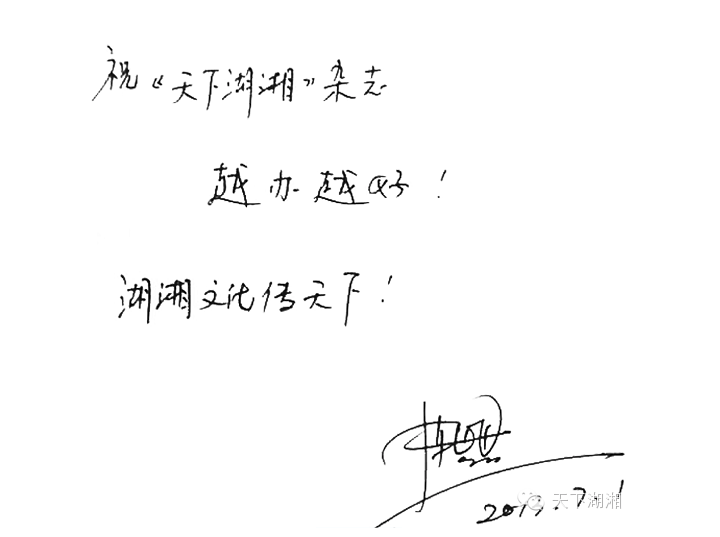 祝《天下湖湘》杂志
越办越好！
湖湘文化传天下！
天下湖湘